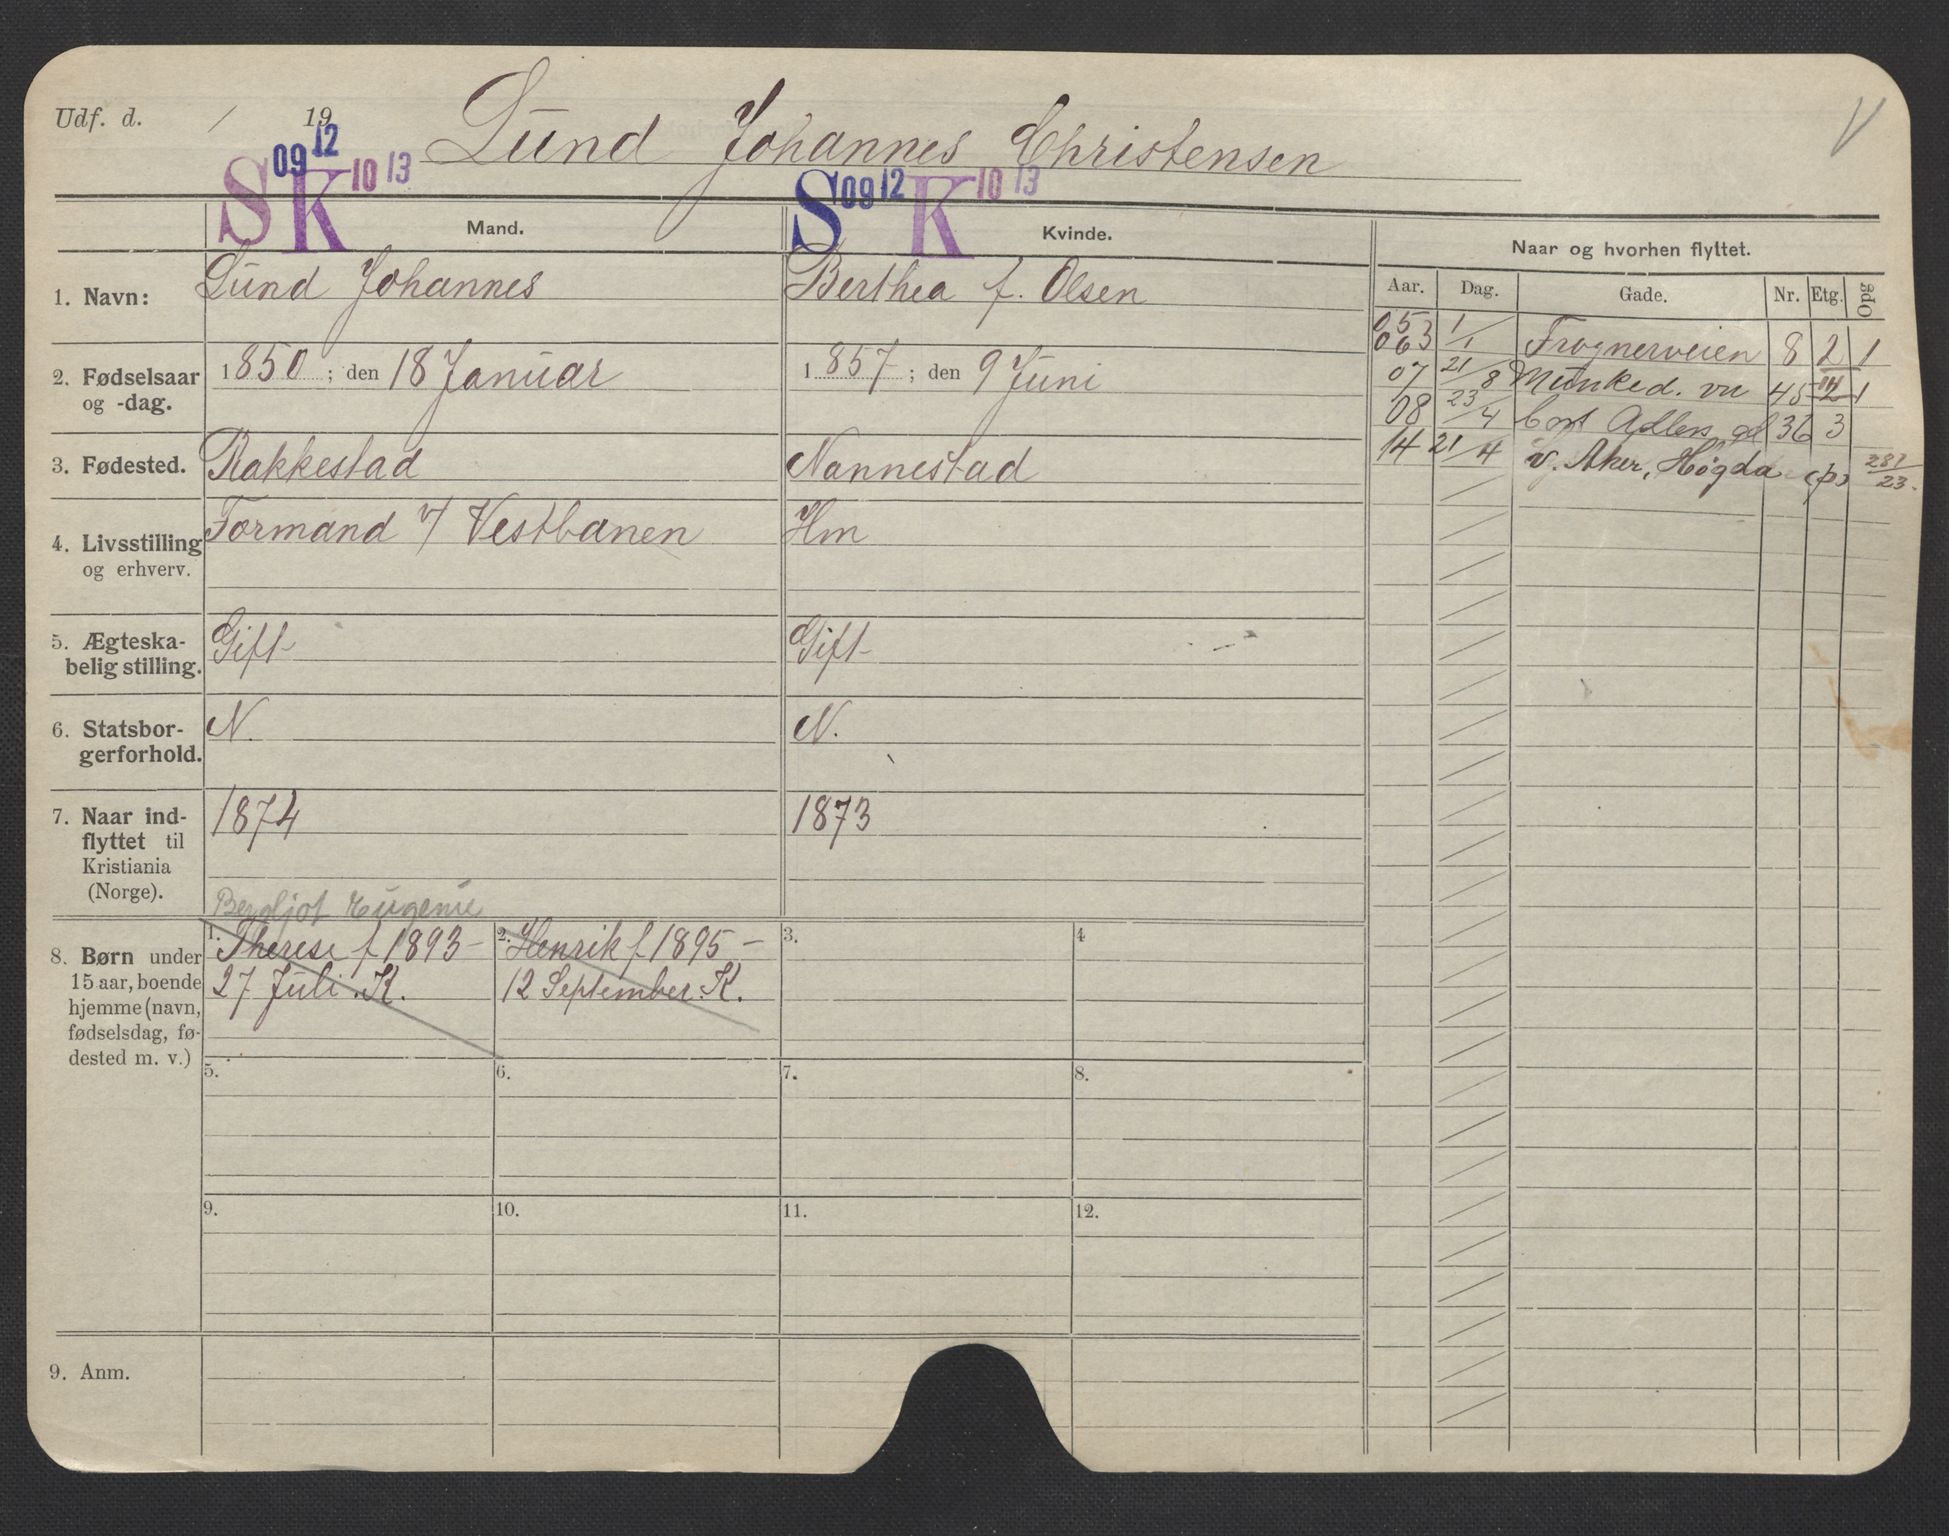 Udf. d. / 19
Lund Johannes Christensen
V
S 09 12 K 10 13
S 09 12 K 10 13
Mand.
Kvinde.
Naar og hvorhen flyttet.
Aar. Dag. Gade. Nr. Etg. Opg
1. Navn: Lund Johannes
Berthea f. Olsen
2. Fødselsaar og -dag. 1850; den 18 Januar
1857; den 9 Juni
3. Fødested. Rakkestad
Nannestad
4. Livsstilling og erhverv. Formand v/ Vestbanen
Hm
5. Ægteska-
belig stilling. Gift
Gift
6. Statsbor-
gerforhold. N.
N.
7. Naar ind-
flyttet til
Kristiania
(Norge).
1874
1873
05 1/1 Frognerveien 8 2 1
07 21/8 Munked. vn 45 1
08 23/4 Cort Adlers gd 36 3
14 21/4 V. Aker, Høgda (p) 287/23.
8. Børn under
15 aar, boende
hjemme (navn,
fødselsdag, fø-
dested m. v.)
Bergljot Eugenie
1. Therese f 1893 –
27 Juli. K.
2. Henrik f 1895 –
12 September. K.
3.
4
5.
6.
7.
8.
9.
10.
11.
12.
9. Anm.